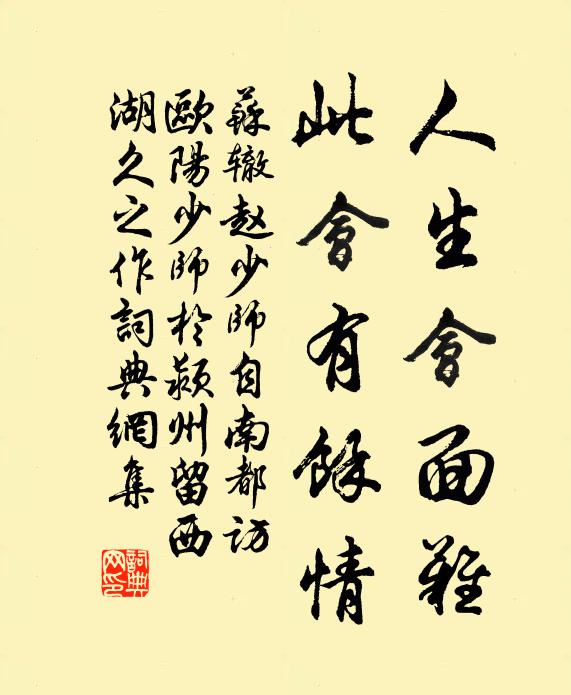 人生會面難
此會有餘情
蘇辙赵少師自南都访
歐陽少師於颍州留西
湖久之作詞典網集
詞典网印